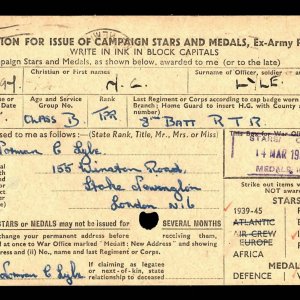 TION FOR ISSUE OF CAMPAIGN STARS AND MEDALS, Ex-Army P
WRITE IN INK IN BLOCK CAPITALS
paign Stars and Medals, as shown below, awarded to me (or to the late)
Christian or First names
Surname of Officer, soldier
N. C.
LYLE.
Age and Service Group
Rank
Last Regiment or Corps according to cap badge worn
Home Guard to insert H.G. with County
CLASS B.
TPR
3RD BATT R T R.
ed to me as follows:— (State Rank, Title, Mr., Mrs. or Miss)
This Box for War Offi
Norman C Lyle
155 Winston Road,
Stoke Newington
London N.16
14 MAR 19
Strike out items
NOT AWA
STARS
1939-45
ATLANTIC
AIR CREW
EUROPE
AFRICA
MEDAL
DEFENCE
STARS or MEDALS may not be issued for
SEVERAL MONTHS
change your permanent address before they are issued
at once to War Office marked "Medals: New Address" and showing
ress and (ii) No., name and last Regiment or Corps.
Norman C Lyle
If claiming as legatee
or next-of-kin, state
relationship to deceased